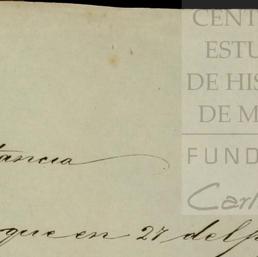 CENT
ESTU
DE HIS
DE M
FUND
Carl
tancia
que en 27 del p